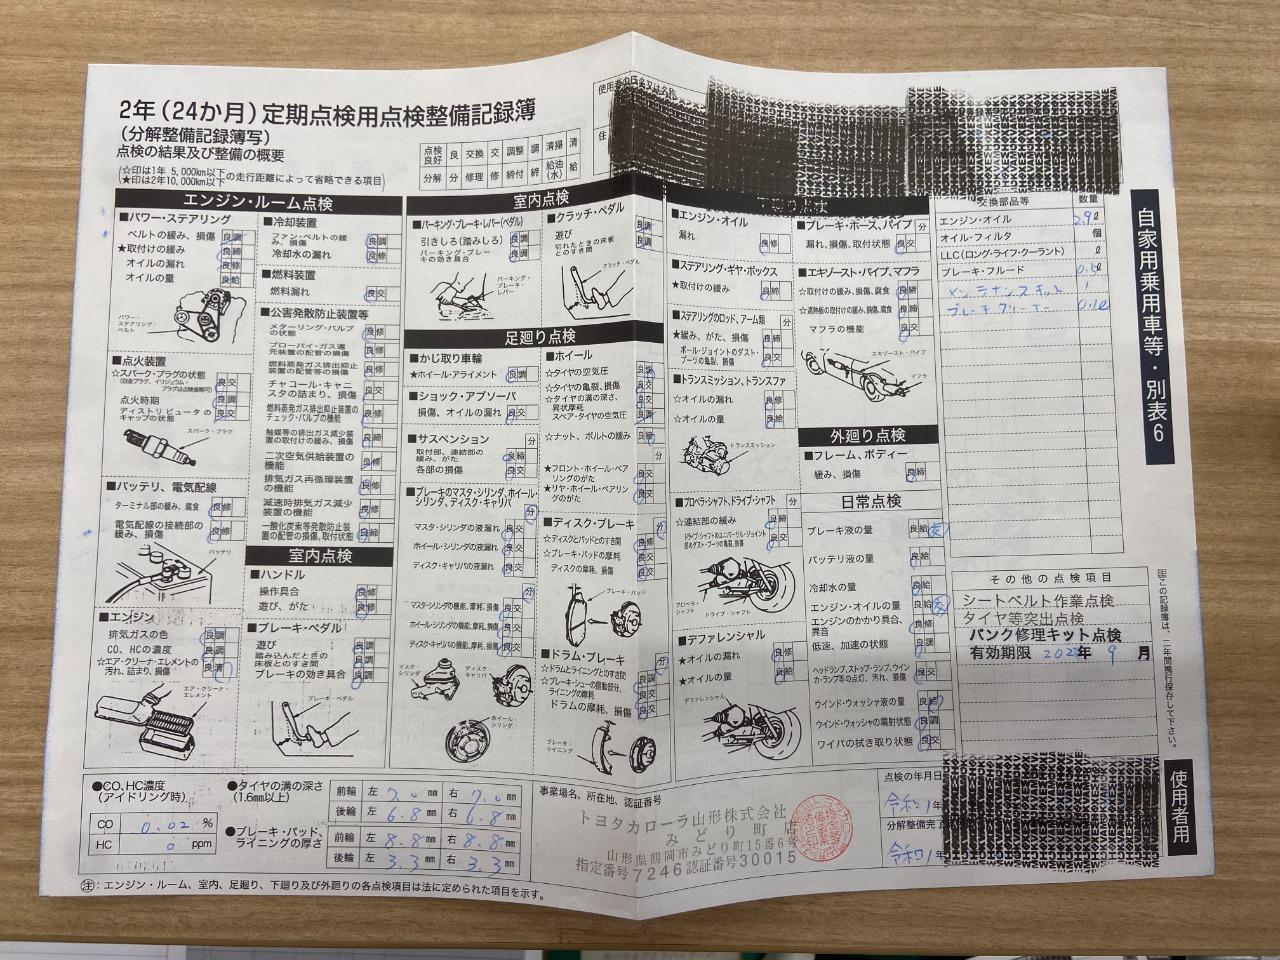 2年(24か月)定期点検用点検整備記録簿
(分解整備記録簿写)
点検の結果及び整備の概要
(☆印は1年 5,000km以下の走行距離によって省略できる項目)
(★印は2年10,000km以下の走行距離によって省略できる項目)
点検良好 良 交換 交 調整 調 清掃 清
分解 分 修理 修 締付 締 給油(水) 給
住
エンジン・ルーム点検
■パワー・ステアリング
ベルトの緩み、損傷 良 調
★取付けの緩み 良 締
オイルの漏れ 良 修
オイルの量 良 給
パワー・ステアリング・ベルト
■点火装置
☆スパーク・プラグの状態 良 交
(白金プラグ、イリジュウム・プラグは点検省略可)
点火時期 良 調
ディストリビュータのキャップの状態 良 交
スパーク・プラグ
■バッテリ、電気配線
ターミナル部の緩み、腐食 良 修
電気配線の接続部の緩み、損傷 良 修
バッテリ
■エンジン
排気ガスの色 良 調
CO、HCの濃度 良 調
☆エア・クリーナ・エレメントの汚れ、詰まり、損傷 良 清
エア・クリーナ・エレメント
■冷却装置
ファン・ベルトの緩み、損傷 良 調
冷却水の漏れ 良 修
■燃料装置
燃料漏れ 良 交
■公害発散防止装置等
メターリング・バルブの状態 良 修
ブローバイ・ガス還元装置の配管の損傷 良 修
燃料蒸発ガス排出抑止装置の配管等の損傷 良 修
チャコール・キャニスタの詰まり、損傷 良 交
燃料蒸発ガス排出抑止装置のチェック・バルブの機能 良 修
触媒等の排出ガス減少装置の取付けの緩み、損傷 良 締
二次空気供給装置の機能 良 修
排気ガス再循環装置の機能 良 修
減速時排気ガス減少装置の機能 良 修
一酸化炭素等発散防止装置の配管の損傷、取付状態 良 締
室内点検
■ハンドル
操作具合 良 修
遊び、がた 良 修
■ブレーキ・ペダル
遊び 良 調
踏み込んだときの床板とのすき間 良 調
ブレーキの効き具合 良 調
ブレーキ・ペダル
室内点検
■パーキング・ブレーキ・レバー(ペダル)
引きしろ(踏みしろ) 良 調
パーキング・ブレーキの効き具合 良 調
パーキング・ブレーキ・レバー
■クラッチ・ペダル
遊び 良 調
切れたときの床板とのすき間 良 調
クラッチ・ペダル
足廻り点検
■かじ取り車輪
★ホイール・アライメント 良 調
■ショック・アブソーバ
損傷、オイルの漏れ 良 交
■サスペンション 分
取付部、連結部の緩み、がた 良 締
各部の損傷 良 交
■ブレーキのマスタ・シリンダ、ホイール・シリンダ、ディスク・キャリパ 分
マスタ・シリンダの液漏れ 良 交
ホイール・シリンダの液漏れ 良 交
ディスク・キャリパの液漏れ 良 交
分
マスタ・シリンダの機能、摩耗、損傷 良 交
ホイール・シリンダの機能、摩耗、損傷 良 交
ディスク・キャリパの機能、摩耗、損傷 良 交
マスタ・シリンダ
ディスク・キャリパ
ホイール・シリンダ
■ホイール
☆タイヤの空気圧
☆タイヤの亀裂、損傷
☆タイヤの溝の深さ、異状摩耗
スペア・タイヤの空気圧
☆ナット、ボルトの緩み
分
★フロント・ホイール・ベアリングのがた 良 交
★リヤ・ホイール・ベアリングのがた 良 交
■ディスク・ブレーキ 分
☆ディスクとパッドとのすき間
☆ブレーキ・パッドの摩耗 良 交
ディスクの摩耗、損傷 良 交
ブレーキ・パッド
■ドラム・ブレーキ 分
☆ドラムとライニングとのすき間
☆ブレーキ・シューの摺動部分、ライニングの摩耗
ドラムの摩耗、損傷 良 交
ブレーキ・ライニング
■エンジン・オイル
漏れ 良 修
■ステアリング・ギヤ・ボックス
★取付けの緩み 良 締
■ステアリングのロッド、アーム類 分
★緩み、がた、損傷 良 締
ボール・ジョイントのダスト・ブーツの亀裂、損傷 良 交
■トランスミッション、トランスファ
☆オイルの漏れ 良 修
☆オイルの量 良 給
トランスミッション
■プロペラ・シャフト、ドライブ・シャフト 分
☆連結部の緩み 良 締
ドライブ・シャフトのユニバーサル・ジョイント部のダスト・ブーツの亀裂、損傷 良 交
プロペラ・シャフト
ドライブ・シャフト
■デファレンシャル
★オイルの漏れ 良 修
★オイルの量 良 給
デファレンシャル
■ブレーキ・ホース、パイプ 分
漏れ、損傷、取付状態 良 交
■エキゾースト・パイプ、マフラ
☆取付けの緩み、損傷、腐食 良 締
☆遮熱板の取付けの緩み、損傷、腐食 良 締
マフラの機能 良 交
エキゾースト・パイプ
マフラ
外廻り点検
■フレーム、ボディー
緩み、損傷 良 締
日常点検
ブレーキ液の量 良 給 交
バッテリ液の量 良 給
冷却水の量 良 給
エンジン・オイルの量 良 給 交
エンジンのかかり具合、異音 良 修
低速、加速の状態 良 調
ヘッドランプ、ストップ・ランプ、ウインカ・ランプ等の点灯、汚れ、損傷 良 交
ウインド・ウォッシャ液の量 良 給
ウインド・ウォッシャの噴射状態 良 調
ワイパの拭き取り状態 良 交
交換部品等 数量
エンジン・オイル 2.9ℓ
オイル・フィルタ 個
LLC(ロング・ライフ・クーラント) ℓ
ブレーキ・フルード 0.5ℓ
メンテナンスキット 1
ブレーキクリーナー
その他の点検項目
シートベルト作業点検
タイヤ等突出点検
パンク修理キット点検
有効期限 年 9月
自家用乗用車等・別表6
注 この記録簿は、二年間携行保存して下さい。
使用者用
●CO、HC濃度(アイドリング時)
CO 0.02 %
HC 0 ppm
●タイヤの溝の深さ(1.6mm以上)
前輪 左 7.0mm 右 7.0mm
後輪 左 6.8mm 右 6.8mm
●ブレーキ・パッド、ライニングの厚さ
前輪 左 8.8mm 右 8.8mm
後輪 左 3.3mm 右 3.3mm
事業場名、所在地、認証番号
トヨタカローラ山形株式会社
みどり町店
山形県鶴岡市みどり町15番6号
指定番号7246認証番号30015
点検の年月日
令和1年
分解整備完了
令和1年
注:エンジン・ルーム、室内、足廻り、下廻り及び外廻りの各点検項目は法に定められた項目を示す。